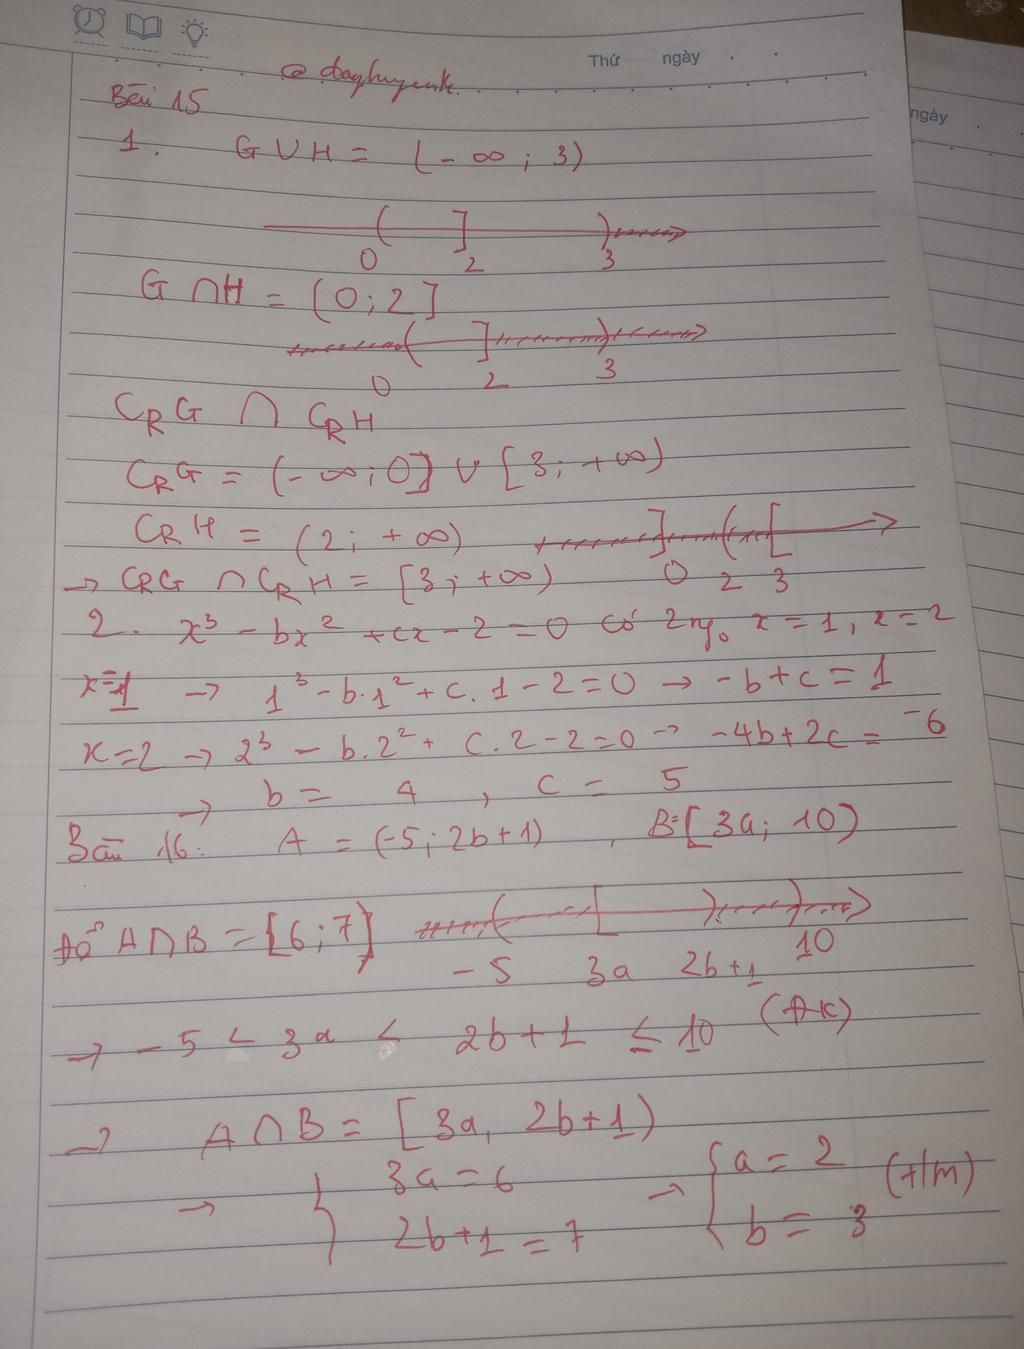 Thứ ngày
ngày
@ dayhuyenk.
Bài 15
1. G ∪ H = (-∞; 3)
0 2 3
G ∩ H = (0; 2]
0 2 3
C_R G ∩ C_R H
C_R G = (-∞; 0] ∪ [3; +∞)
C_R H = (2; +∞)
0 2 3
→ C_R G ∩ C_R H = [3; +∞)
2. x³ - bx² + cx - 2 = 0 có 2 ng₀ x = 1, x = 2
x = 1 → 1³ - b.1² + c.1 - 2 = 0 → -b + c = 1
x = 2 → 2³ - b.2² + c.2 - 2 = 0 → -4b + 2c = -6
→ b = 4, c = 5
Bài 16: A = (-5; 2b+1), B = [3a; 10)
Để A ∩ B = [6; 7]
-5 3a 2b+1 10
→ -5 < 3a < 2b + 1 ≤ 10 (ĐK)
→ A ∩ B = [3a, 2b+1)
→ { 3a = 6 → { a = 2 (t/m)
2b+1 = 7 b = 3